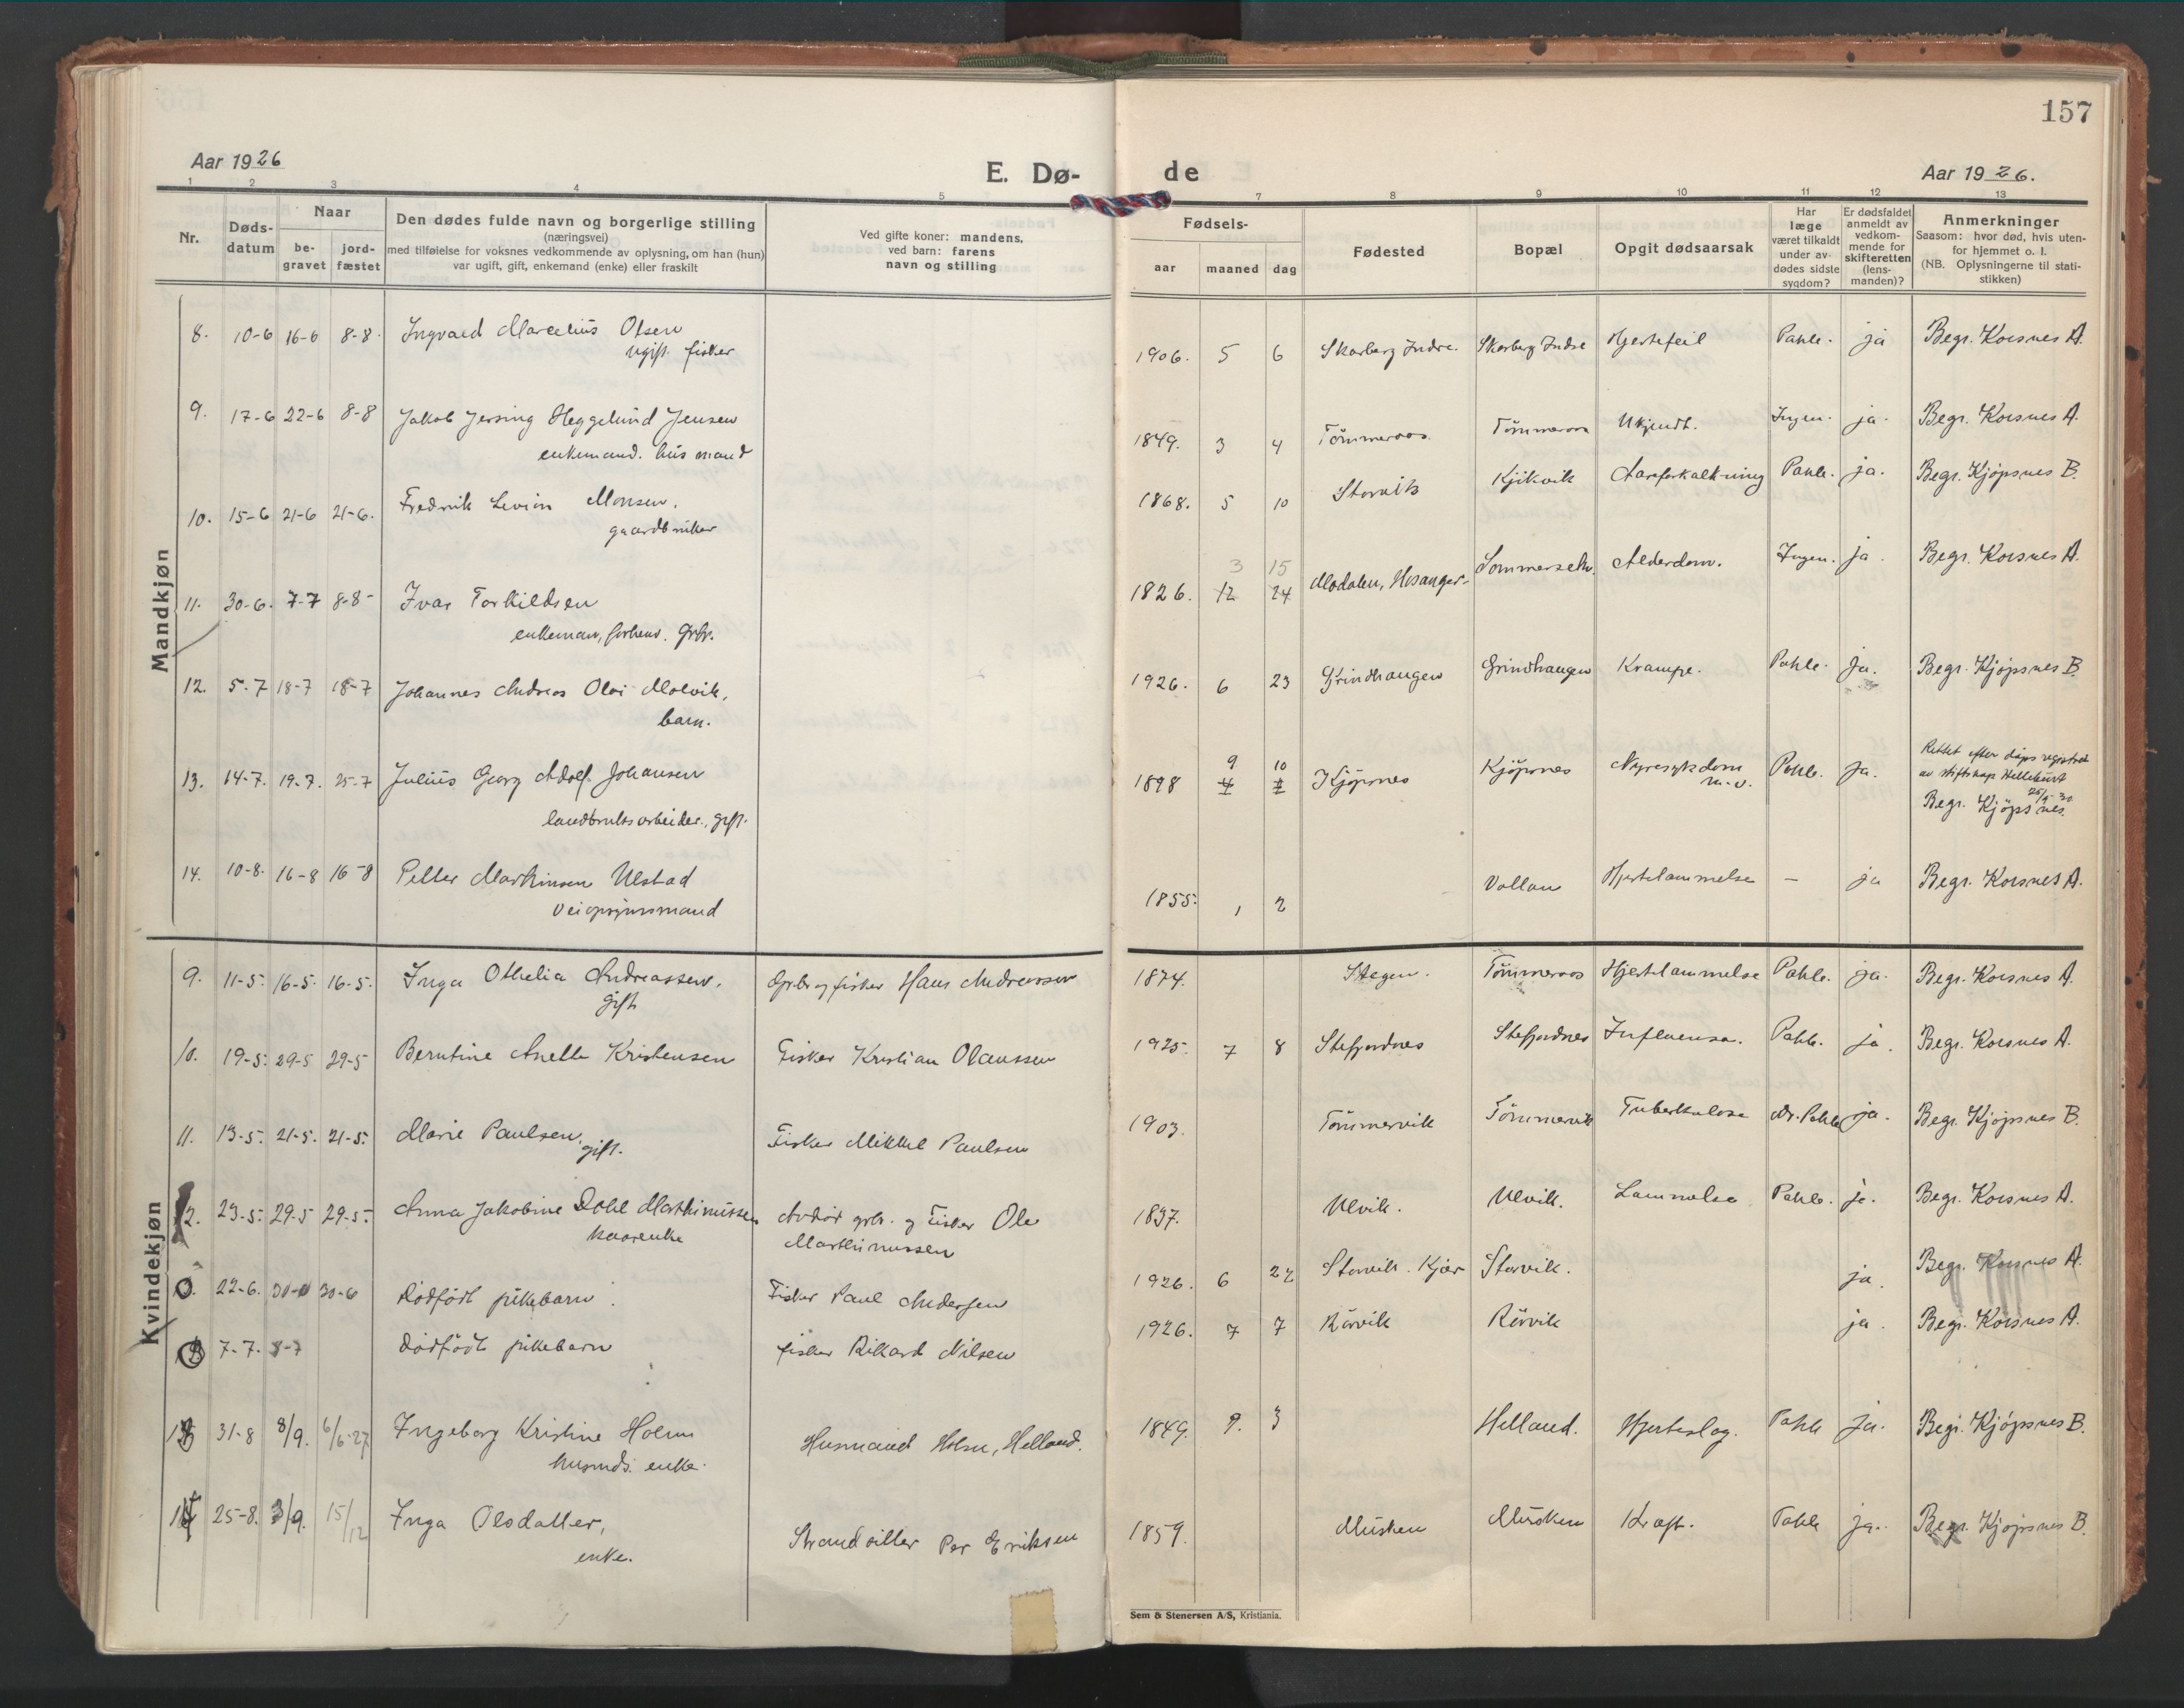 157
Aar 1926
E. Dø-
de
Aar 1926.
1 2 3 4 5 7 8 9 10 11 12 13
Nr.
Døds-
datum
Naar
be-
gravet
jord-
fæstet
Den dødes fulde navn og borgerlige stilling
(næringsvei)
med tilføielse for voksnes vedkommende av oplysning, om han (hun)
var ugift, gift, enkemand (enke) eller fraskilt
Ved gifte koner: mandens,
ved barn: farens
navn og stilling
Fødsels-
aar maaned dag
Fødested
Bopæl
Opgit dødsaarsak
Har
læge
været tilkaldt
under av-
dødes sidste
sygdom?
Er dødsfaldet
anmeldt av
vedkom-
mende for
skifteretten
(lens-
manden)?
Anmerkninger
Saasom: hvor død, hvis uten-
for hjemmet o. l.
(NB. Oplysningerne til stati-
stikken)
Mandkjøn
8. 10-6 16-6 8-8. Ingvald Marcelius Olsen
ugift. fisker
1906. 5 6 Skarberg Indre. Skarberg Indre Hjertefeil Pahle. ja Begr. Korsnes A.
9. 17-6 22-6 8-8 Jakob Jersing Heggelund Jensen
enkemand. husmand
1849. 3 4 Tömmeraas. Tömmeraas Ukjendt. Ingen. ja. Begr. Korsnes A.
10. 15-6 21-6 21-6. Fredrik Levion Monsen.
gaardbruker
1868. 5 10 Storvik Kjikvik Aareforkalkning Pahle. ja. Begr. Kjöpsnes B.
11. 30-6. 7-7 8-8- Ivar Torkildsen
enkeman, forhenv. grbr.
3 15
1826. 12 24 Modalen, Hosanger- Sommerseth. Alderdom. Ingen. ja. Begr. Korsnes A.
12. 5-7 18-7 18-7 Johannes Andreas Olai Molvik,
barn.
1926. 6 23 Grindhaugen Grindhaugen Krampe. Pahle. ja. Begr. Kjöpsnes B.
13. 14-7. 19-7. 25-7 Julius Georg Adolf Johansen
landbruksarbeider., gift.
9 10
1898 4 Kjöpsnes Kjöpsnes Nyresykdom
m.v. Pahle. ja.
Rettet efter dåpsregistret
av stiftskap Hellekurt
25/9-30
Begr. Kjöpsnes.
14. 10-8. 16-8 16-8 Petter Martinsen Ulstad
Veiopsynsmand
1855. 1 2 Vollan Hjertelammelse — ja Begr. Korsnes A.
Kvindekjøn
9. 11-5. 16-5. 16-5. Inga Othelia Andreassen.
gift
Grbr og fisker Hans Andreassen 1874. Stegen. Tömmeraas Hjertelammelse Pahle. ja. Begr. Korsnes A.
10. 19-5. 29-5 29-5 Berntine Anette Kristensen Fisker Kristian Olaussen 1925. 7 8 Stefjordnes Stefjordnes Influensa. Pahle. ja. Begr. Korsnes A.
11. 13-5. 21-5. 21-5. Marie Paulsen.
gift.
Fisker Mikkel Paulsen 1903. Tömmervik Tömmervik Tuberkulose Dr. Pahle ja. Begr. Kjöpsnes B.
12. 23-5. 29-5 29-5. Anna Jakobine Dahl Marthinussen
kaarenke
Avdød grbr. og Fisker Ole
Marthinussen
1837. Ulvik. Ulvik. Lammelse Pahle. ja. Begr. Korsnes A.
0. 22-6. 30-6 30-6 Dødfødt pikebarn. Fisker Paul Andersen 1926. 6 22 Storvik. Kjær Storvik. ja. Begr. Korsnes A.
7-7. 8-7 dødfødt pikebarn fisker Rikard Nilsen 1926. 7 7 Rörvik Rörvik ja. Begr. Korsnes A.
13 31-8 8/9. 6/6-27 Ingeborg Kristine Holm
husmds. enke.
Husmand Holm, Helland. 1849. 9. 3 Helland. Hjerteslag. Pahle ja. Begr. Kjöpsnes B.
14 25-8. 3/9. 15/12 Inga Olsdatter,
enke.
Strandsitter Per Eriksen 1859. Musken Musken Kræft. Pahle ja. Begr. Kjöpsnes B.
Sem & Stenersen A/S, Kristiania.